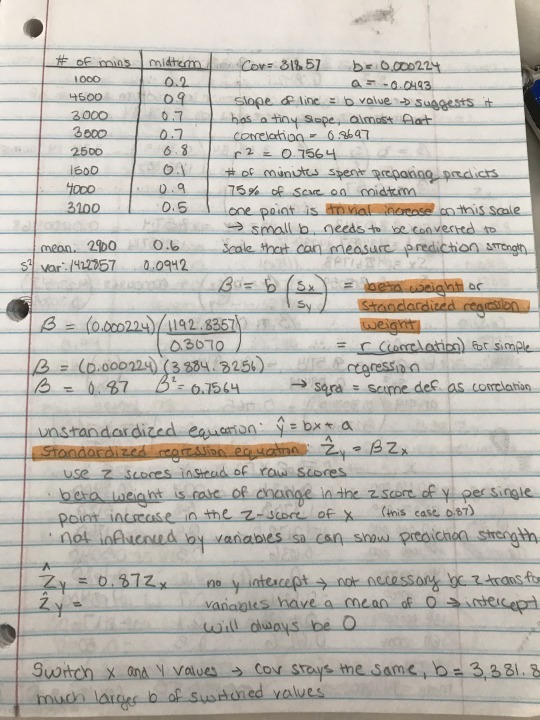 # of mins midterm Cov = 318.57 b = 0.000224
1000 0.2 a = -0.0493
4500 0.9 slope of line = b value → suggests it
3000 0.7 has a tiny slope, almost flat
3600 0.7 correlation = 0.8697
2500 0.8 r² = 0.7564
1500 0.1 # of minutes spent preparing predicts
4000 0.9 75% of score on midterm
3200 0.5 one point is trivial increase on this scale
→ small b, needs to be converted to
mean: 2900 0.6 scale that can measure prediction strength
s² var: 1422857 0.0942
β = b (Sx/Sy) = beta weight or
standardized regression
weight
β = (0.000224)(1192.8357/0.3070)
= r (correlation) for simple
regression
β = (0.000224)(3884.8256)
β = 0.87 β² = 0.7564 → sqrd = same def. as correlation
unstandardized equation: ŷ = bx + a
standardized regression equation: Ẑy = βZx
use z scores instead of raw scores
· beta weight is rate of change in the z score of y per single
point increase in the z-score of x (this case 0.87)
· not influenced by variables so can show prediction strength
Ẑy = 0.87Zx no y intercept → not necessary bc z transfo
Ẑy = variables have a mean of 0 → intercept
will always be 0
Switch X and Y values → cov stays the same, b = 3,381.8
much larger b of switched values